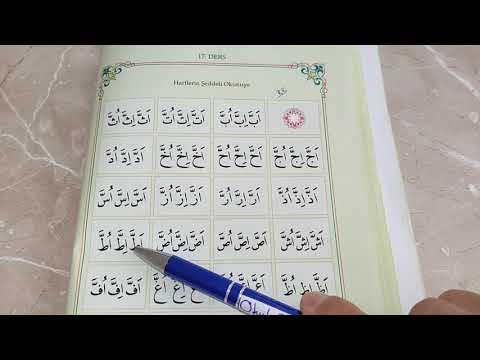 17. DERS
Harflerin Şeddeli Okunuşu
اَبَّ اِبَّ اُبَّ اَتَّ اِتَّ اُتَّ اَثَّ اِثَّ اُثَّ
اَجَّ اِجَّ اُجَّ اَحَّ اِحَّ اُحَّ اَخَّ اِخَّ اُخَّ اَدَّ اِدَّ اُدَّ
اَذَّ اِذَّ اُذَّ اَرَّ اِرَّ اُرَّ اَزَّ اِزَّ اُزَّ اَسَّ اِسَّ اُسَّ
اَشَّ اِشَّ اُشَّ اَصَّ اِصَّ اُصَّ اَضَّ اِضَّ اُضَّ اَطَّ اِطَّ اُطَّ
اَظَّ اِظَّ اُظَّ اَعَّ اِعَّ اُعَّ اِغَّ اُغَّ اَفَّ اِفَّ اُفَّ